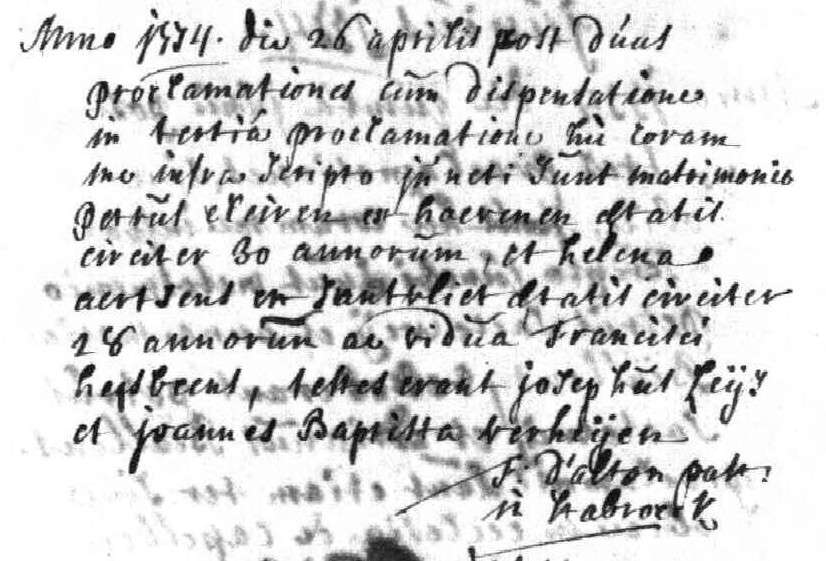 Anno 1774. die 26 aprilis post duas
proclamationes cum dispensatione
in tertia proclamatione hic coram
me infra scripto juncti sunt matrimonio
petrus cleiren ex hoevenen ætatis
circiter 30 annorum, et helena
aertsens ex santvliet ætatis circiter
28 annorum ac vidua Francisci
herbeens, testes erant josephus Leijs
et joannes Baptista verheijen
F: D'alton past:
in Stabroeck